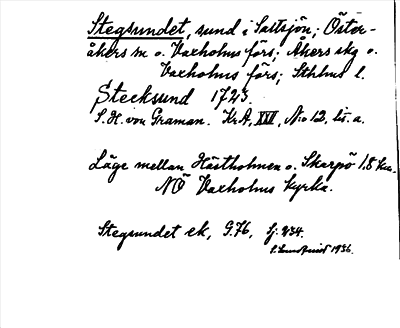 Stegsundet, sund i Saltsjön; Öster-
åkers sn o. Vaxholms förs; Åkers skg o.
Vaxholms förs; Sthlms l.
Stecksund 1723.
S. H. von Graman. Kr.A, XVI, N:o 12, lit. a.
Läge mellan Hästholmen o. Skarpö 1.8 km.
NO Vaxholms kyrka.
Stegsundet ek, G.76, Sj: 234.
S. Lundqvist 1936.